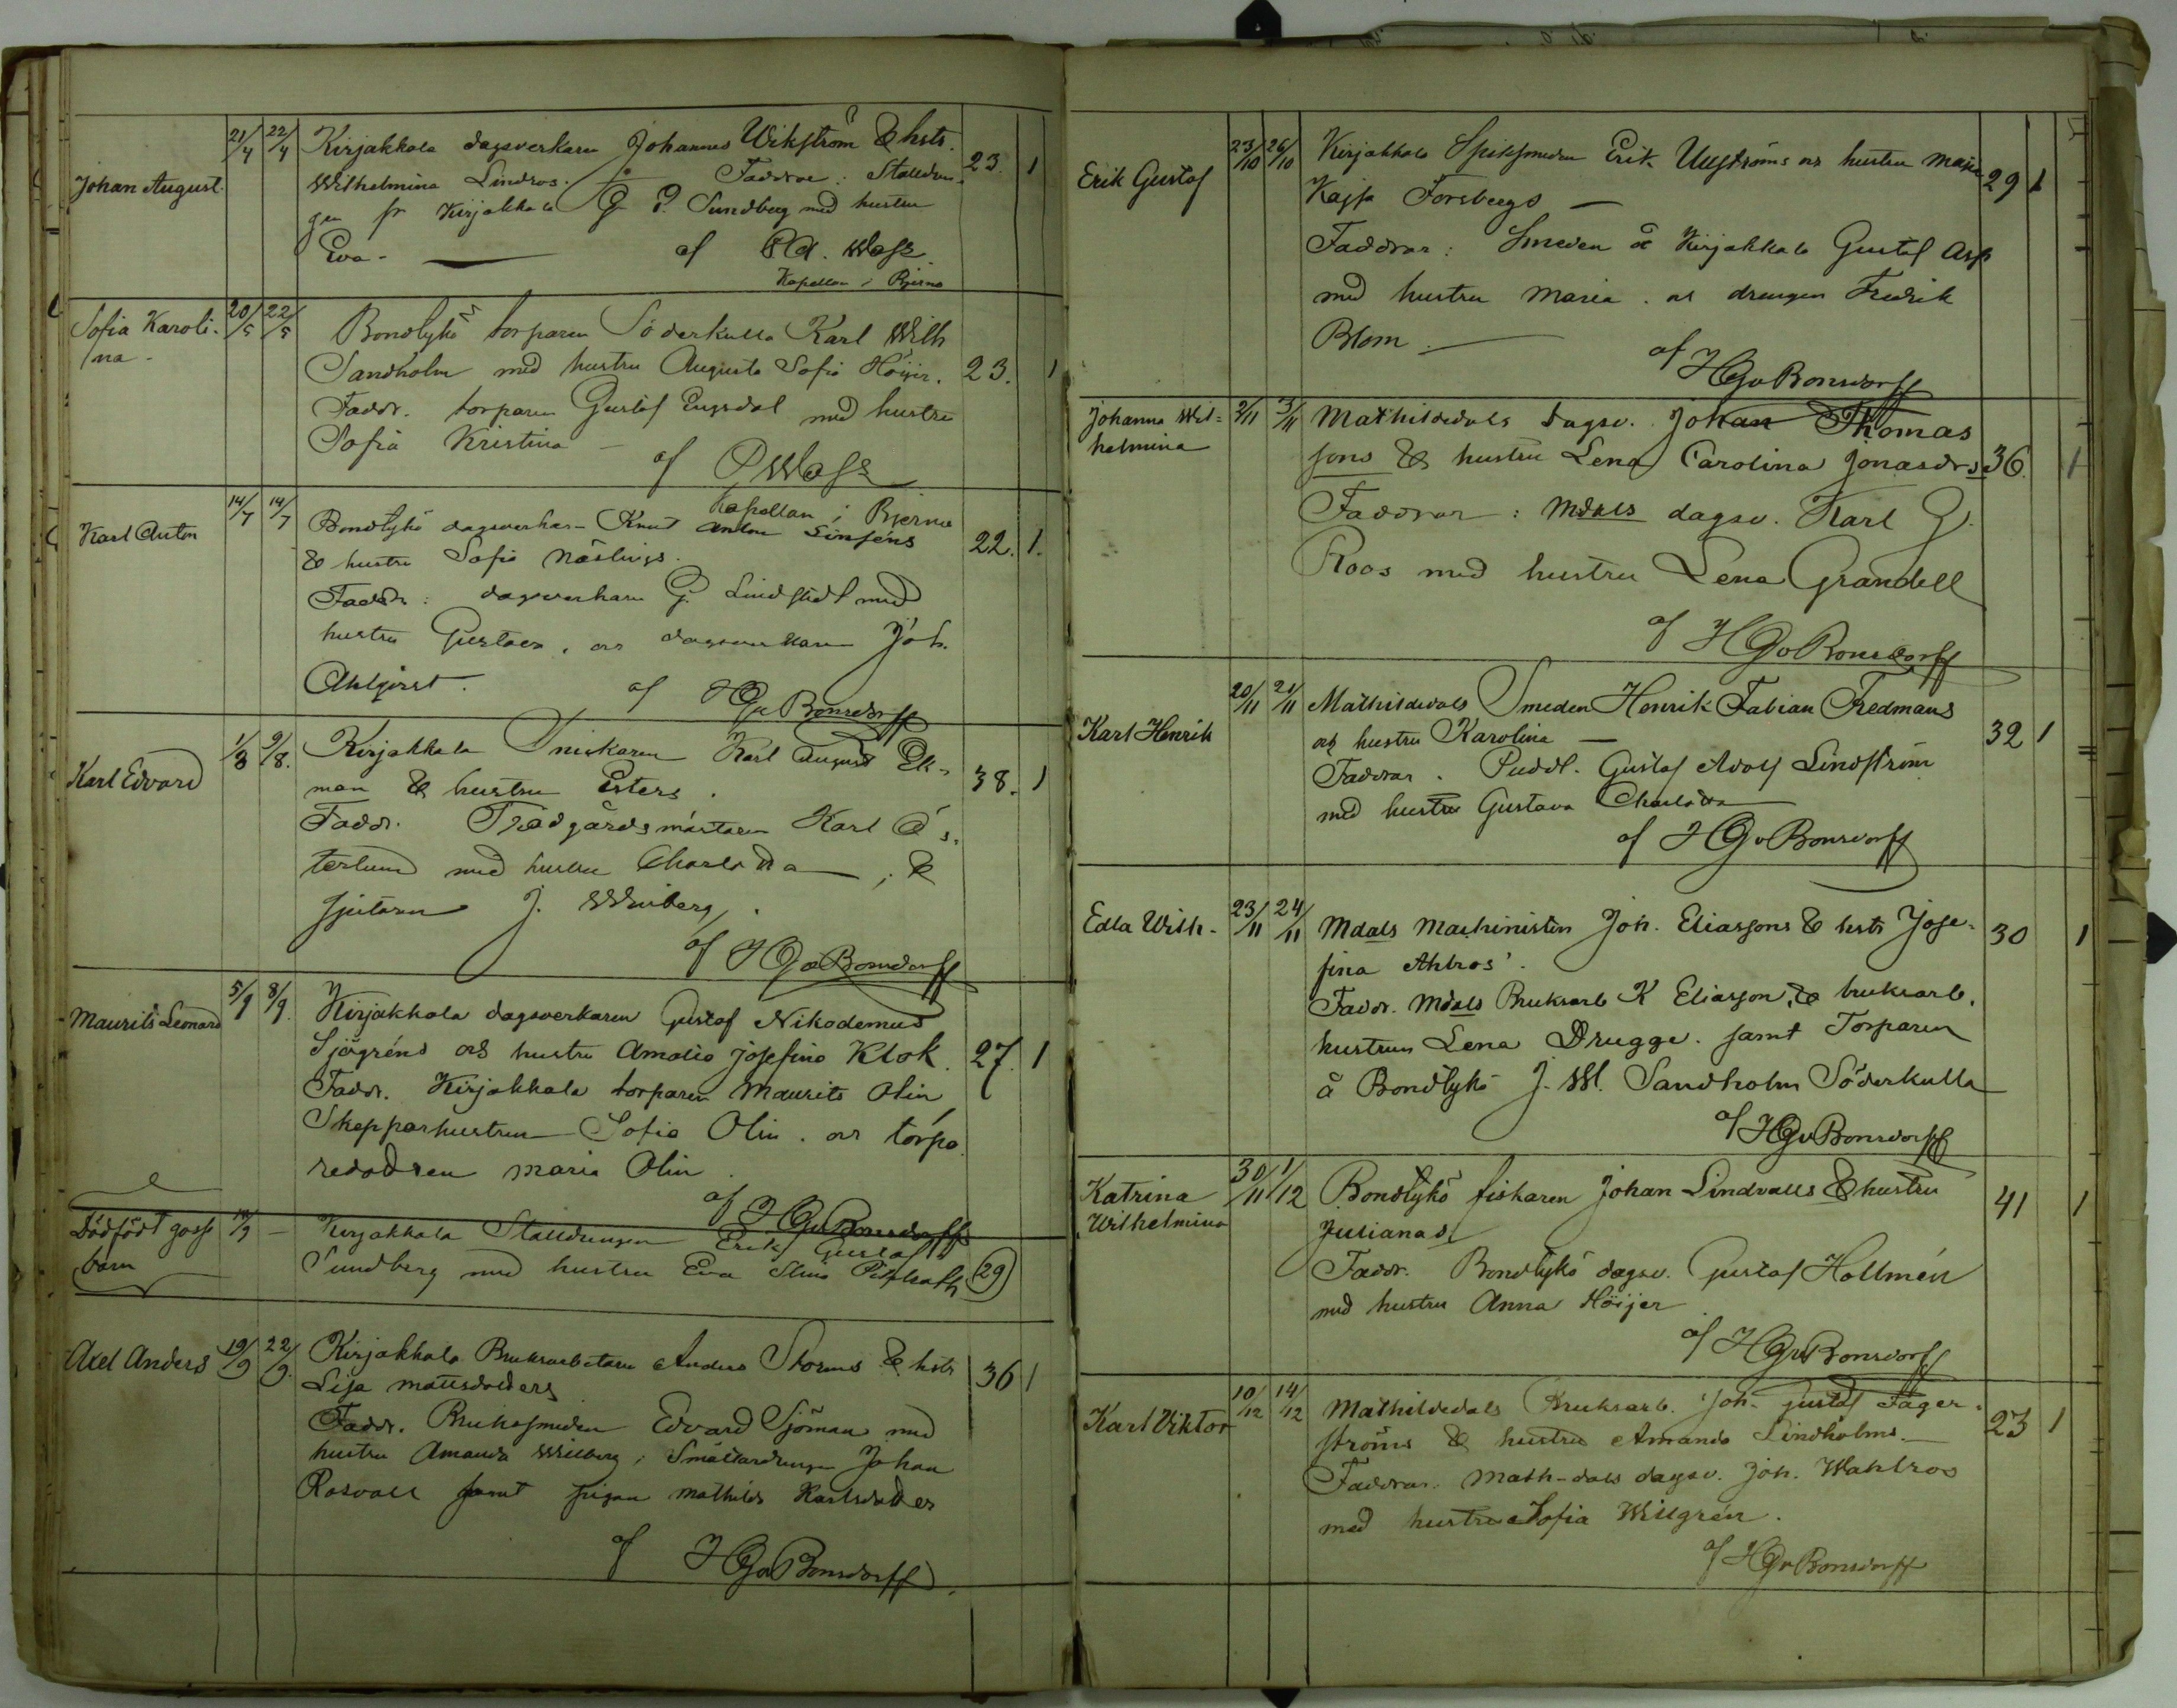 Johan August
21/4 22/4
Kirjakkala dagsverkaren Johannes Wikström & hstr.
Wilhelmina Lindros. Faddrar: Stalldren-
gen fr Kirjakkala G. Sundberg med hustru
Eva. — af Wass
Kapellan i Bjerno
23. 1
Sofia Karoli-
na
20/5 22/5
Bondtykö torparen Söderkulla Karl Wilh
Sandholm med hustru Augusta Sofia Höijer.
23. 1
Faddr. torparen Gustaf Engdal med hustru
Sofia Kristina —
af Wass
Kapellan i Bjerno
Karl Anton
14/7 14/7
Bondtykö dagsverkar- Knut Anton Linséns
& hustru Sofia Näslings.
22. 1.
Faddr: dagsverkaren G. Lindstedt med
hustru Gustava, och dagsverkaren Joh.
Ahlqvist.
af HGvBonsdorff
Karl Edvard
1/8 9/8.
Kirjakkala Snickaren Karl August Ek-
man & hustru Esters.
38. 1
Faddr. Trädgårdsmästaren Karl Ös-
terlund med hustru Charlotta —, &
gjutaren J. Winberg.
af HGvBonsdorff
Maurits Leonard
5/9 8/9.
Kirjakkala dagsverkaren Gustaf Nikodemus
Sjögréns och hustru Amalia Josefina Klok.
27. 1
Faddr. Kirjakkala torparen Maurits Olin
Skepparhustrun Sofia Olin. och torpa-
redottren Maria Olin.
af HGvBonsdorff
Dödfödt gosse
barn
—
Kirjakkala Stalldrengen Erik Gustaf
Sundberg med hustru Eva Stina
(29)
Axel Anders
19/9 22/9.
Kirjakkala Bruksarbetaren Anders Storms & hstr
Lisa Mattsdotters
36 1
Faddr. Brukssmeden Edvard Sjöman med
hustru Amanda Willberg, Smältardrengen Johan
Rosvall samt pigan Mathilda Karlsdotter
af HGvBonsdorff.
Erik Gustaf
23/10 26/10
Kirjakkala Spiksmeden Erik Ungströms och hustru Maria
Kajsa Forsbergs —
29 1
Faddrar: Smeden å Kirjakkala Gustaf Asp
med hustru Maria. och drengen Fredrik
Blom. —
af HGvBonsdorff
Johanna Wil-
helmina
2/11 3/11
Mathildedals dagsv. Johan Thomas
sons & hustru Lena Carolina Jonasdrs
36. 1
Faddrar: Mdals dagsv. Karl G.
Roos med hustru Lena Grandell
af HGvBonsdorff
Karl Henrik
20/11 21/11
Mathildedals Smeden Henrik Fabian Fredmans
och hustru Karolina —
32 1
Faddrar. Puddl. Gustaf Adolf Lindström
med hustru Gustava Charlotta
af HGvBonsdorff
Edla Wilh-
23/11 24/11
Mdals Machinisten Joh. Eliassons & hstr Jose-
fina Ahlros'.
30 1
Faddr. Mdals Bruksarb K Eliasson, & bruksarb.
hustrun Lena Drugge. samt Torparen
å Bondtykö J. W. Sandholm Söderkulla
af HGvBonsdorff
Katrina
Wilhelmina
30/11 1/12
Bondtykö fiskaren Johan Lindvalls & hustru
Julianas
41 1
Faddr. Bondtykö dagsv. Gustaf Hollmén
med hustru Anna Höijer
af HGvBonsdorff
Karl Viktor
10/12 14/12
Mathildedals Bruksarb. Joh. Gustaf Fager-
ströms & hustru Amanda Lindholms. —
23 1
Faddrar. Math-dals dagsv. Joh. Wahlros
med hustru Sofia Willgrén.
af HGvBonsdorff